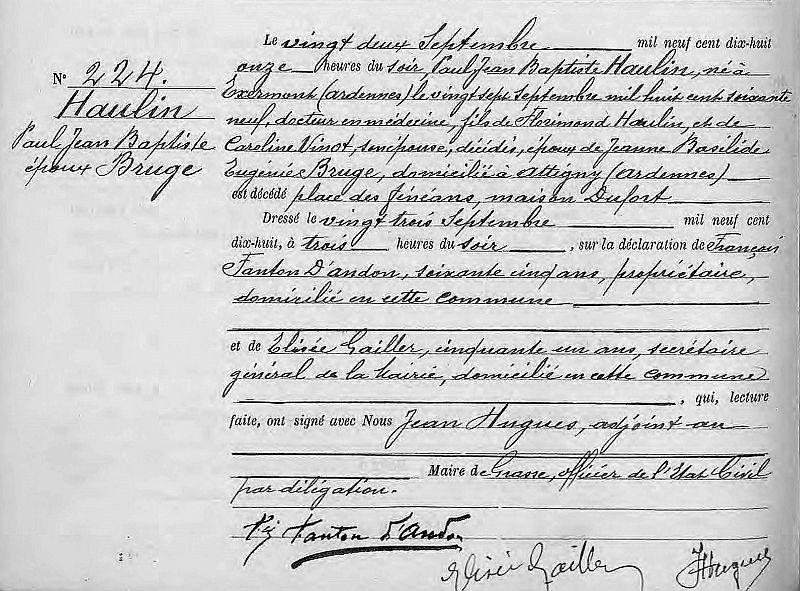 N° 224.
Haulin
Paul Jean Baptiste
époux Bruge
Le vingt deux Septembre mil neuf cent dix-huit
onze heures du soir, Paul Jean Baptiste Haulin, né à
Exermont (ardennes) le vingt sept Septembre mil huit cent soixante
neuf, docteur en médecine, fils de Florimond Haulin, et de
Caroline Vinot, son épouse, décédés, époux de Jeanne Basilide
Eugénie Bruge, domicilié à Attigny (Ardennes)
est décédé place des Fénéans, maison Dufort
Dressé le vingt trois Septembre mil neuf cent
dix-huit, à trois heures du soir, sur la déclaration de François
Fanton D'andon, soixante cinq ans, propriétaire,
domicilié en cette commune
et de Elisée Gailler, cinquante un ans, secrétaire
général de la Mairie, domicilié en cette commune
, qui, lecture
faite, ont signé avec Nous Jean Hugues, adjoint au
Maire de Grasse, officier de l'Etat Civil
par délégation.
Fanton D'Andon
Elisée Gailler
JHugues